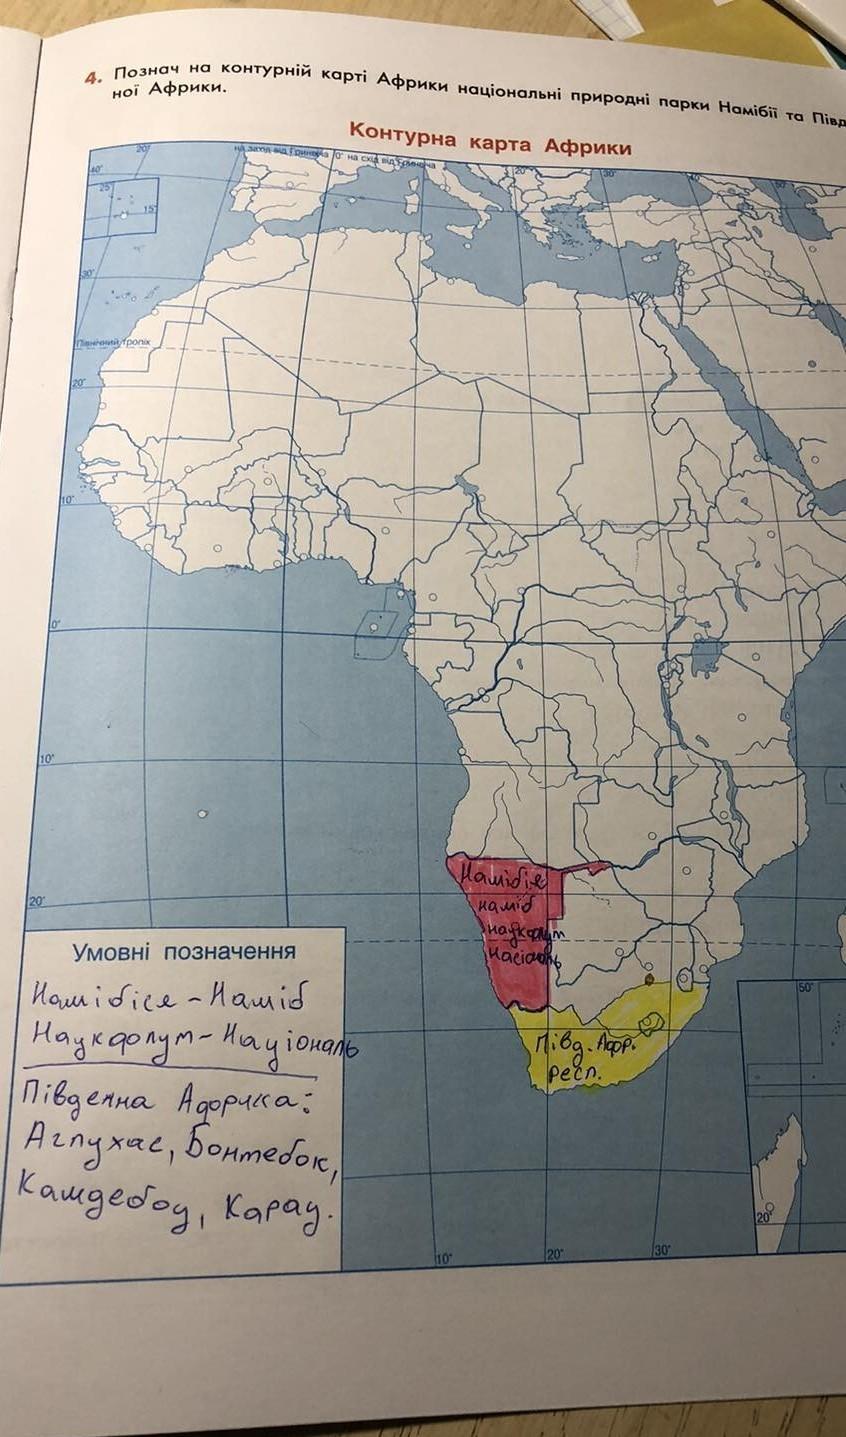 4. Познач на контурній карті Африки національні природні парки Намібії та Півд
ної Африки.
Контурна карта Африки
20°
на захід від Гринвіча 0° на схід від Гринвіча
20°
30°
40°
50°
40°
25°
15°
30°
Північний тропік
20°
10°
0°
10°
20°
Намібія
наміб
наукфлум
Півд. Афр.
респ.
Умовні позначення
Намібієя - Наміб
Наукфлум - Національ
Південна Африка:
Аглухас, Бонтебок,
Камдебоу, Кароу.
50°
20°
10°
20°
30°